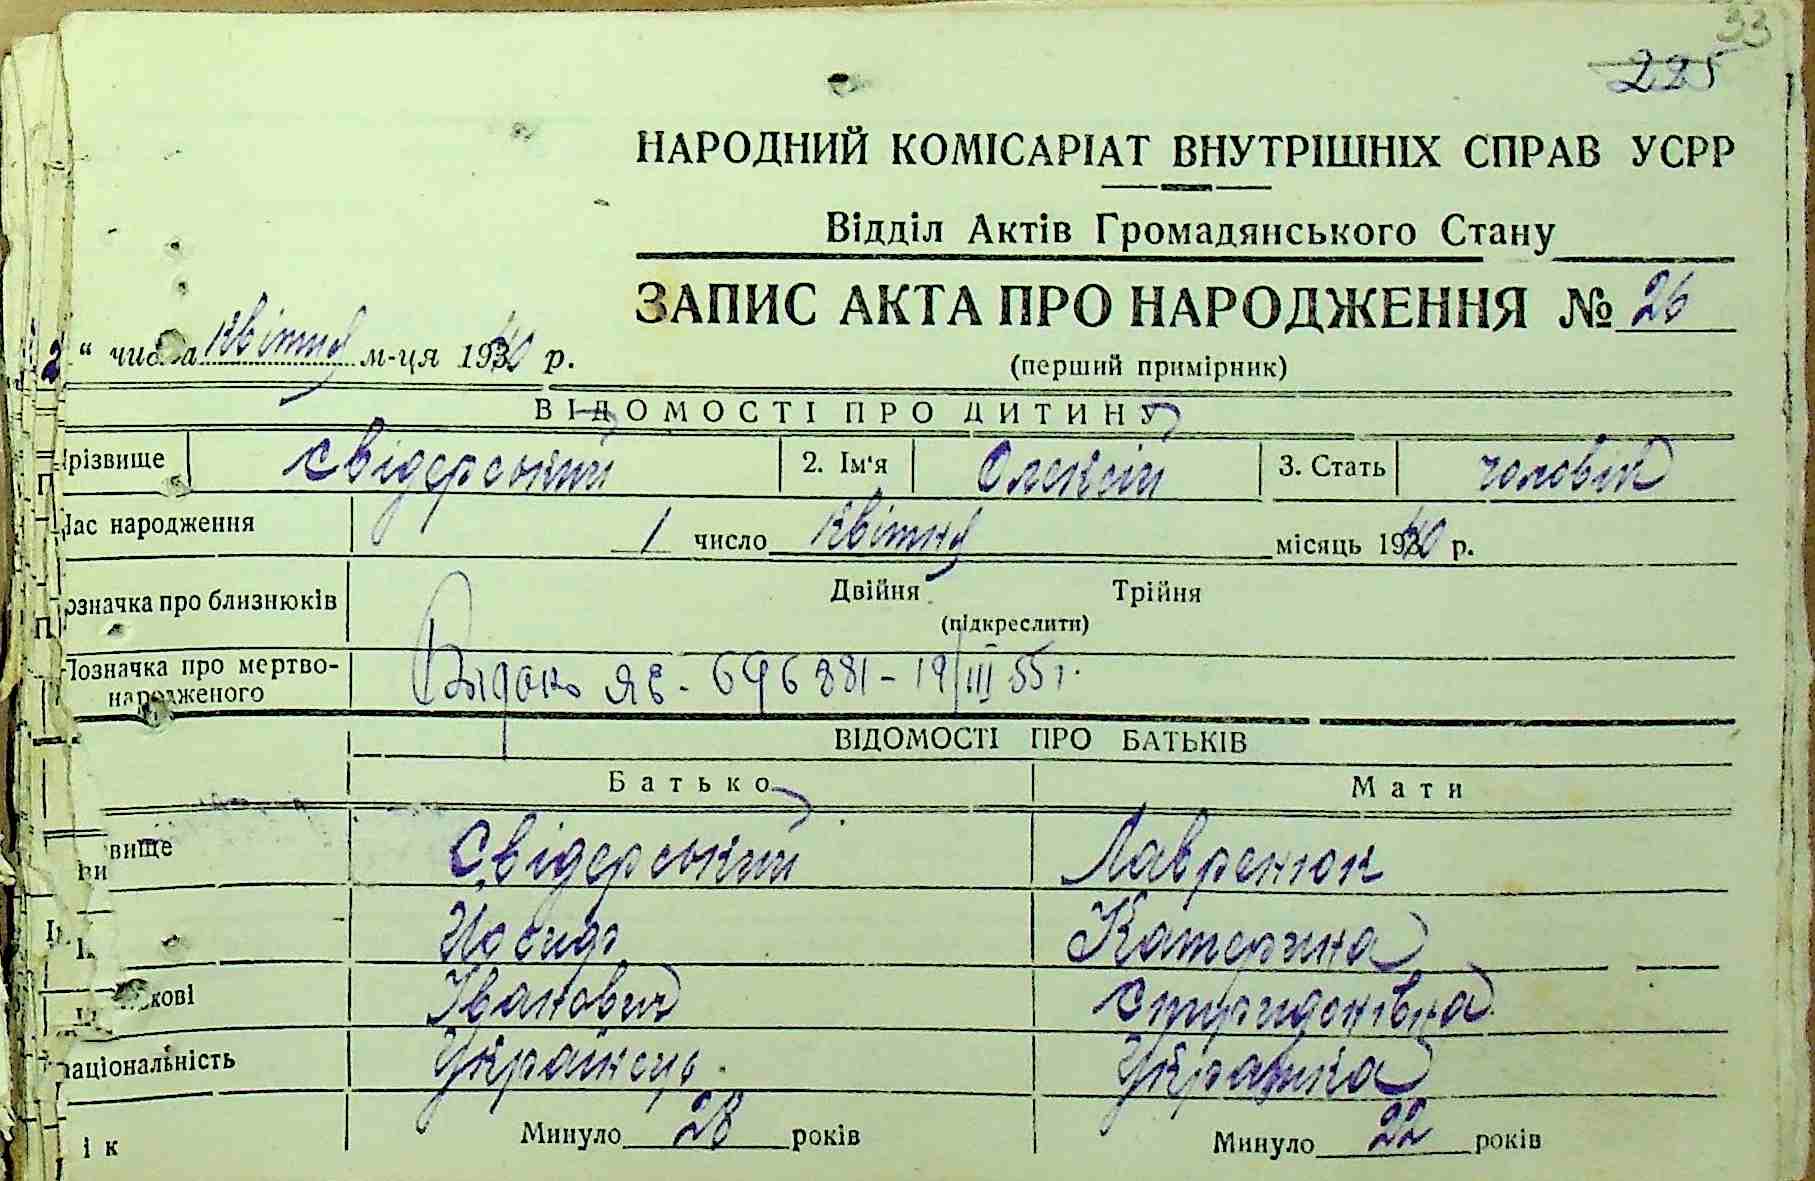 33
225
НАРОДНИЙ КОМІСАРІАТ ВНУТРІШНІХ СПРАВ УСРР
Відділ Актів Громадянського Стану
ЗАПИС АКТА ПРО НАРОДЖЕННЯ № 26
2 " числа квітня м-ця 1940 р.
(перший примірник)
ВІДОМОСТІ ПРО ДИТИНУ
різвище Свідерський 2. Ім'я Олексій 3. Стать чоловік
Час народження 1 число квітня місяць 1940 р.
означка про близнюків Двійня Трійня
(підкреслити)
Позначка про мертво-
народженого
696881 – 19/III 55 г.
ВІДОМОСТІ ПРО БАТЬКІВ
Батько Мати
вище Свідерський Лавренюк
Йосип Катерина
кові Іванович Спиридонівна
національність Українець. Українка
ік Минуло 28 років Минуло 22 років